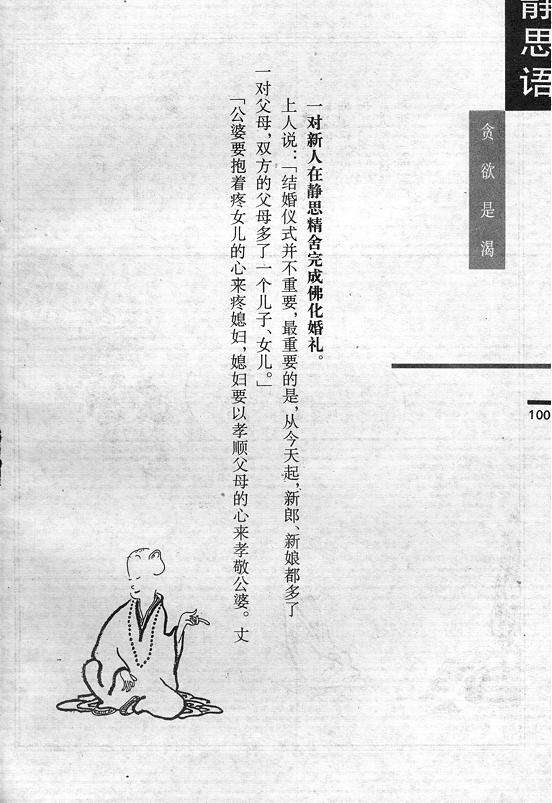 静思语
贪欲是渴
100
一对新人在静思精舍完成佛化婚礼。
上人说：「结婚仪式并不重要，最重要的是，从今天起，新郎、新娘都多了
一对父母，双方的父母多了一个儿子、女儿。」
「公婆要抱着疼女儿的心来疼媳妇，媳妇要以孝顺父母的心来孝敬公婆。丈